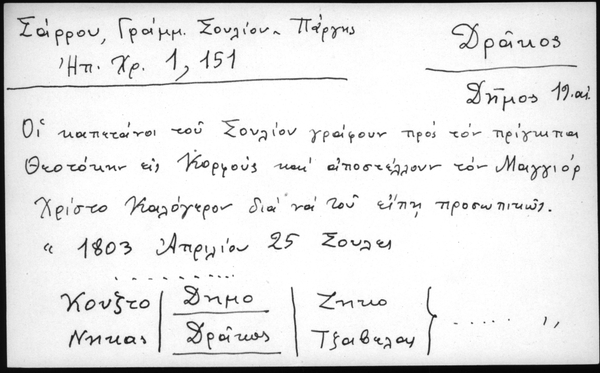 Σάρρου, Γράμμ. Σουλίου - Πάργης
Ἠπ. Χρ. 1, 151
Δράκος
Δῆμος 19. αἰ.
Οἱ καπετάνοι τοῦ Σουλίου γράφουν πρός τόν πρίγκιπα
Θεοτόκην εἰς Κορφούς καί ἀποστέλλουν τόν Μαγγιόρ
Χρίστο Καλόγερον διά νά τοῦ εἴπῃ προσωπικῶς.
" 1803 Ἀπριλίου 25 Σουλει
. . . . . . . . . . .
Κουζτο | Δημο | Ζηκο
Νηκας | Δράκος | Τζαβελας } . . . . . "